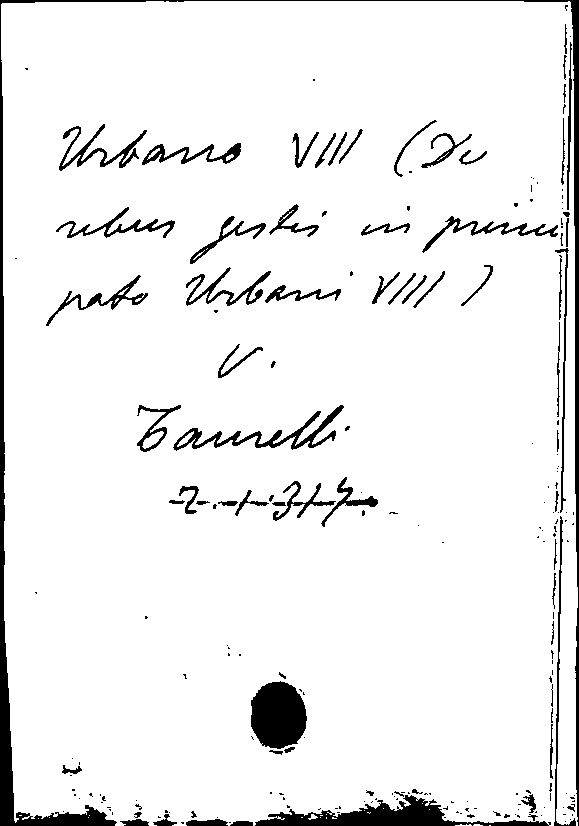 Urbano VIII (De
rebus gestis in princi
pato Urbani VIII)
V.
Taurelli